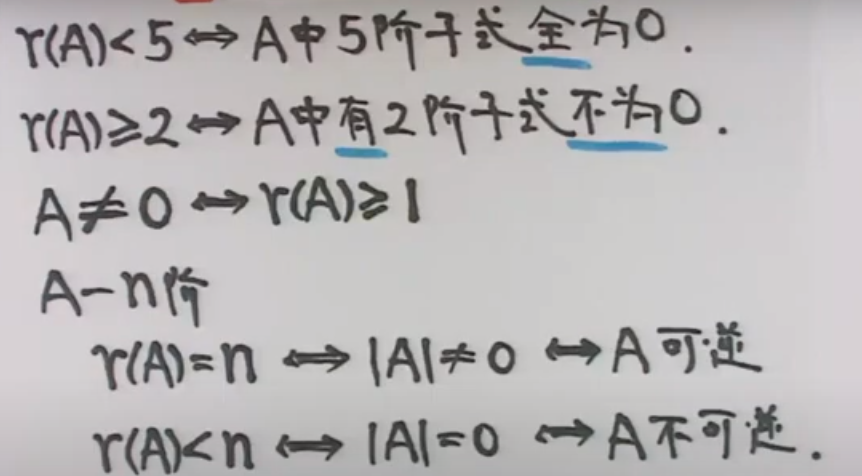 r(A)<5⇔A中5阶子式全为0.
r(A)≥2⇔A中有2阶子式不为0.
A≠0⇔r(A)≥1
A-n阶
r(A)=n⇔|A|≠0⇔A可逆
r(A)<n⇔|A|=0⇔A不可逆.